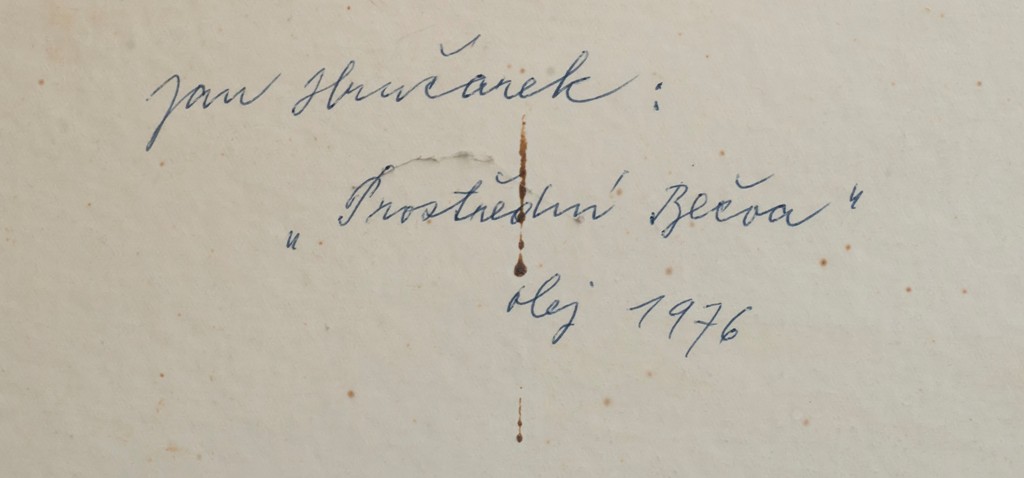 Jan Hručarek:
„Prostřední Bečva"
olej 1976